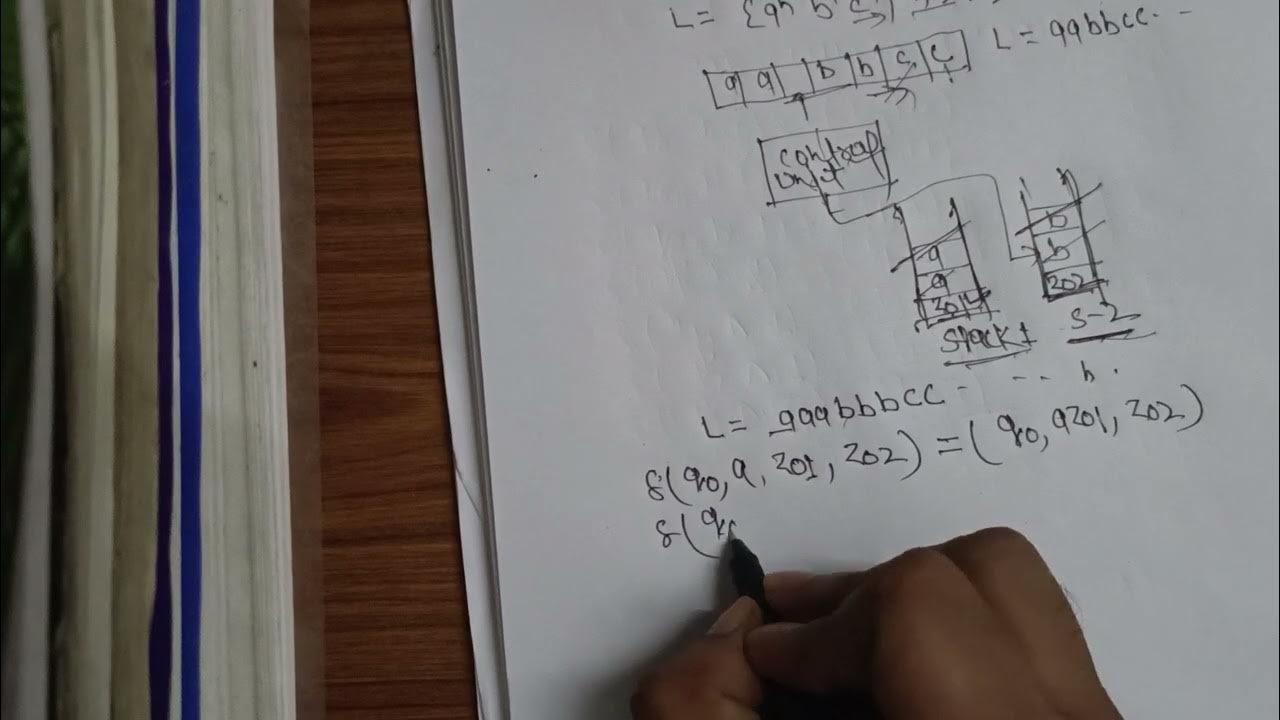 L = {aⁿ bⁿ
L = aabbcc - -
a a b b c c
control
unit
a
a
Z01
b
b
Z02
Stack 1
S-2
L = aaabbbcc - - - b.
δ(q0, a, Z01, Z02) = (q0, aZ01, Z02)
δ(q0